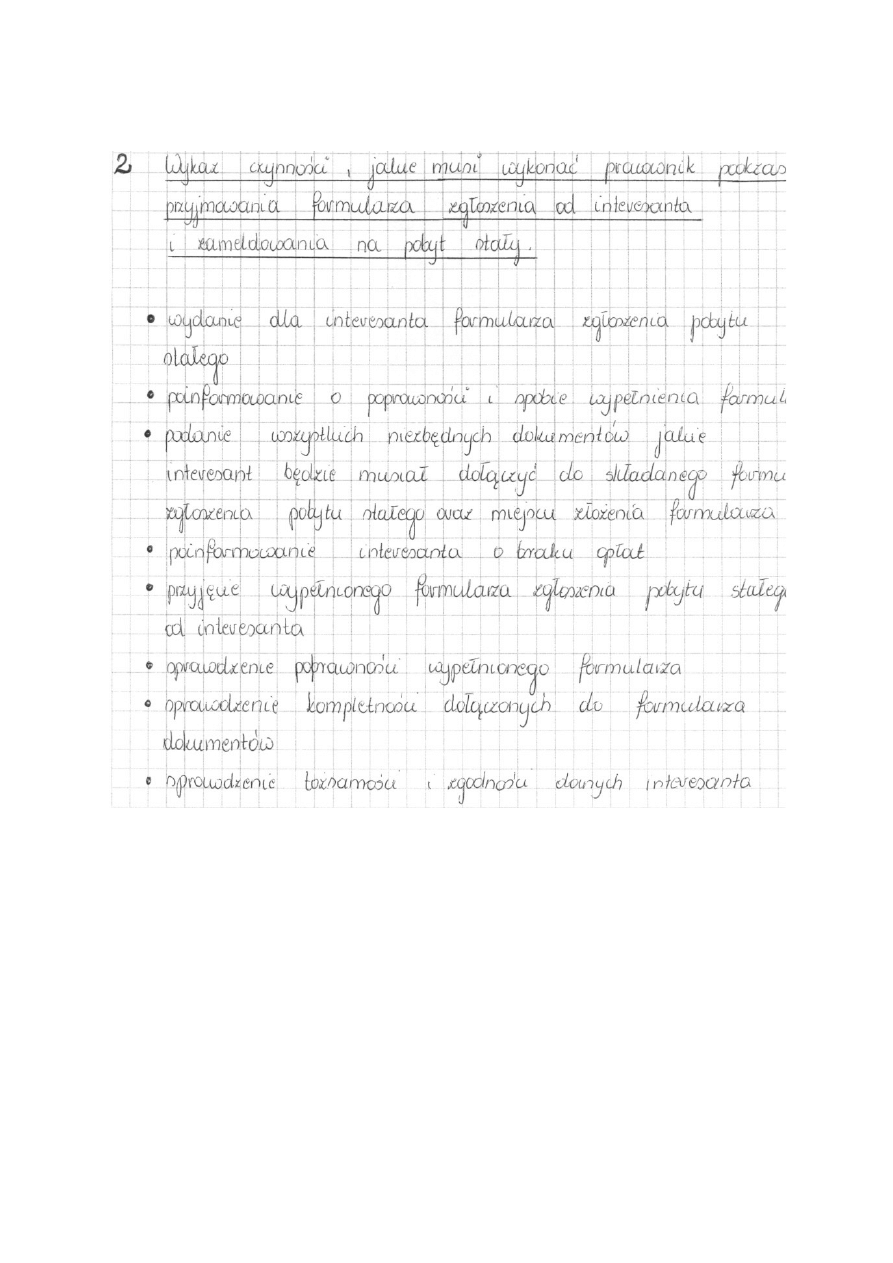 2 Wykaz czynności, jakie musi wykonać pracownik podczas
przyjmowania formularza zgłoszenia od interesanta
i zameldowania na pobyt stały.
• wydanie dla interesanta formularza zgłoszenia pobytu
stałego
• poinformowanie o poprawności i spobie wypełnienia formul
• podanie wszystkich niezbędnych dokumentów jakie
interesant będzie musiał dołączyć do składanego formu
zgłoszenia pobytu stałego oraz miejscu złożenia formularza
• poinformowanie interesanta o braku opłat
• przyjęcie wypełnionego formularza zgłoszenia pobytu stałeg
od interesanta
• sprawdzenie poprawności wypełnionego formularza
• sprawdzenie kompletności dołączonych do formularza
dokumentów
• sprawdzenie tożsamości i zgodności danych interesanta